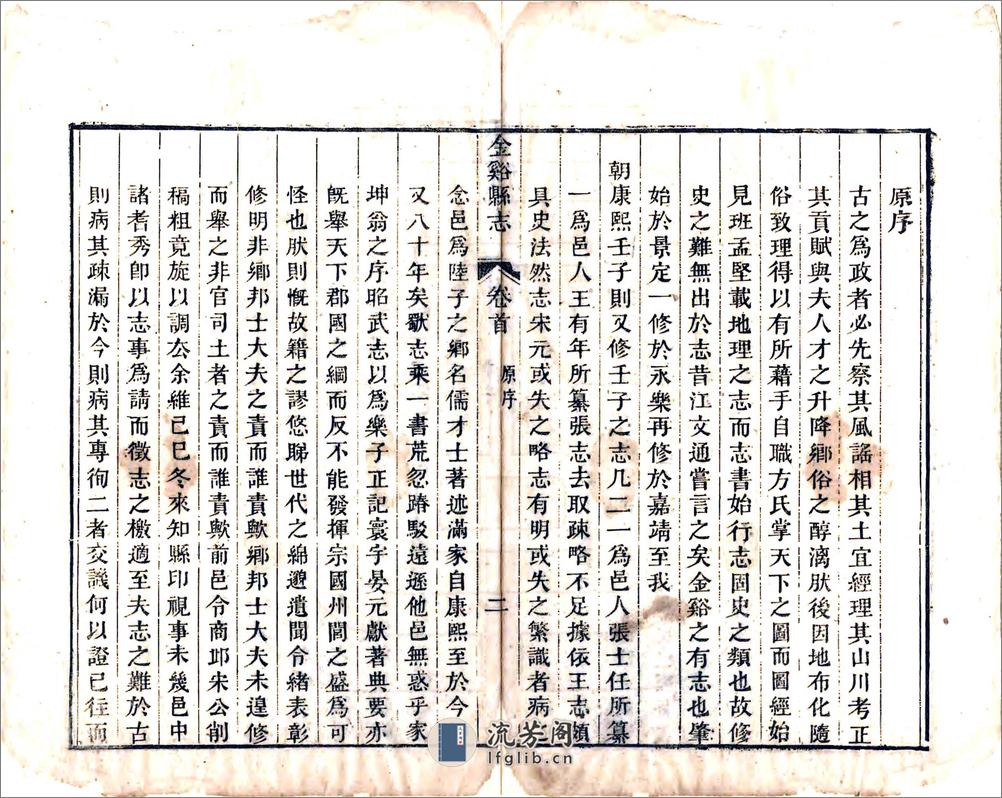 原序
古之爲政者必先察其風謠相其土宜經理其山川考正
其貢賦與夫人才之升降鄉俗之醇漓肰後因地布化隨
俗致理得以有所藉手自職方氏掌天下之圖而圖經始
見班孟堅載地理之志而志書始行志固史之類也故修
史之難無出於志昔江文通嘗言之矣金谿之有志也肇
始於景定一修於永樂再修於嘉靖至我
朝康熙壬子則又修壬子之志凡二一爲邑人張士任所纂
一爲邑人王有年所纂張志去取疎略不足據依王志頗
具史法然志宋元或失之略志有明或失之繁識者病
金谿縣志
卷首
原序
二
念邑爲陸子之鄉名儒才士著述滿家自康熙至於今
又八十年矣歘志乘一書荒忽踳駁遠遜他邑無惑乎家
坤翁之序昭武志以爲樂子正記寰宇晏元獻著典要亦
旣舉天下郡國之綱而反不能發揮宗國州閭之盛爲可
怪也肰則慨故籍之謬悠睇世代之綿邈遺聞令緒表彰
修明非鄉邦士大夫之責而誰責歟鄉邦士大夫未遑修
而舉之非官司土者之責而誰責歟前邑令商邱宋公削
稿粗竟旋以調厺余維己巳冬來知縣印視事未幾邑中
諸耆秀卽以志事爲請而徵志之檄適至夫志之難於古
則病其疎漏於今則病其專徇二者交譏何以證已往而
流芳阁
lfglib.cn